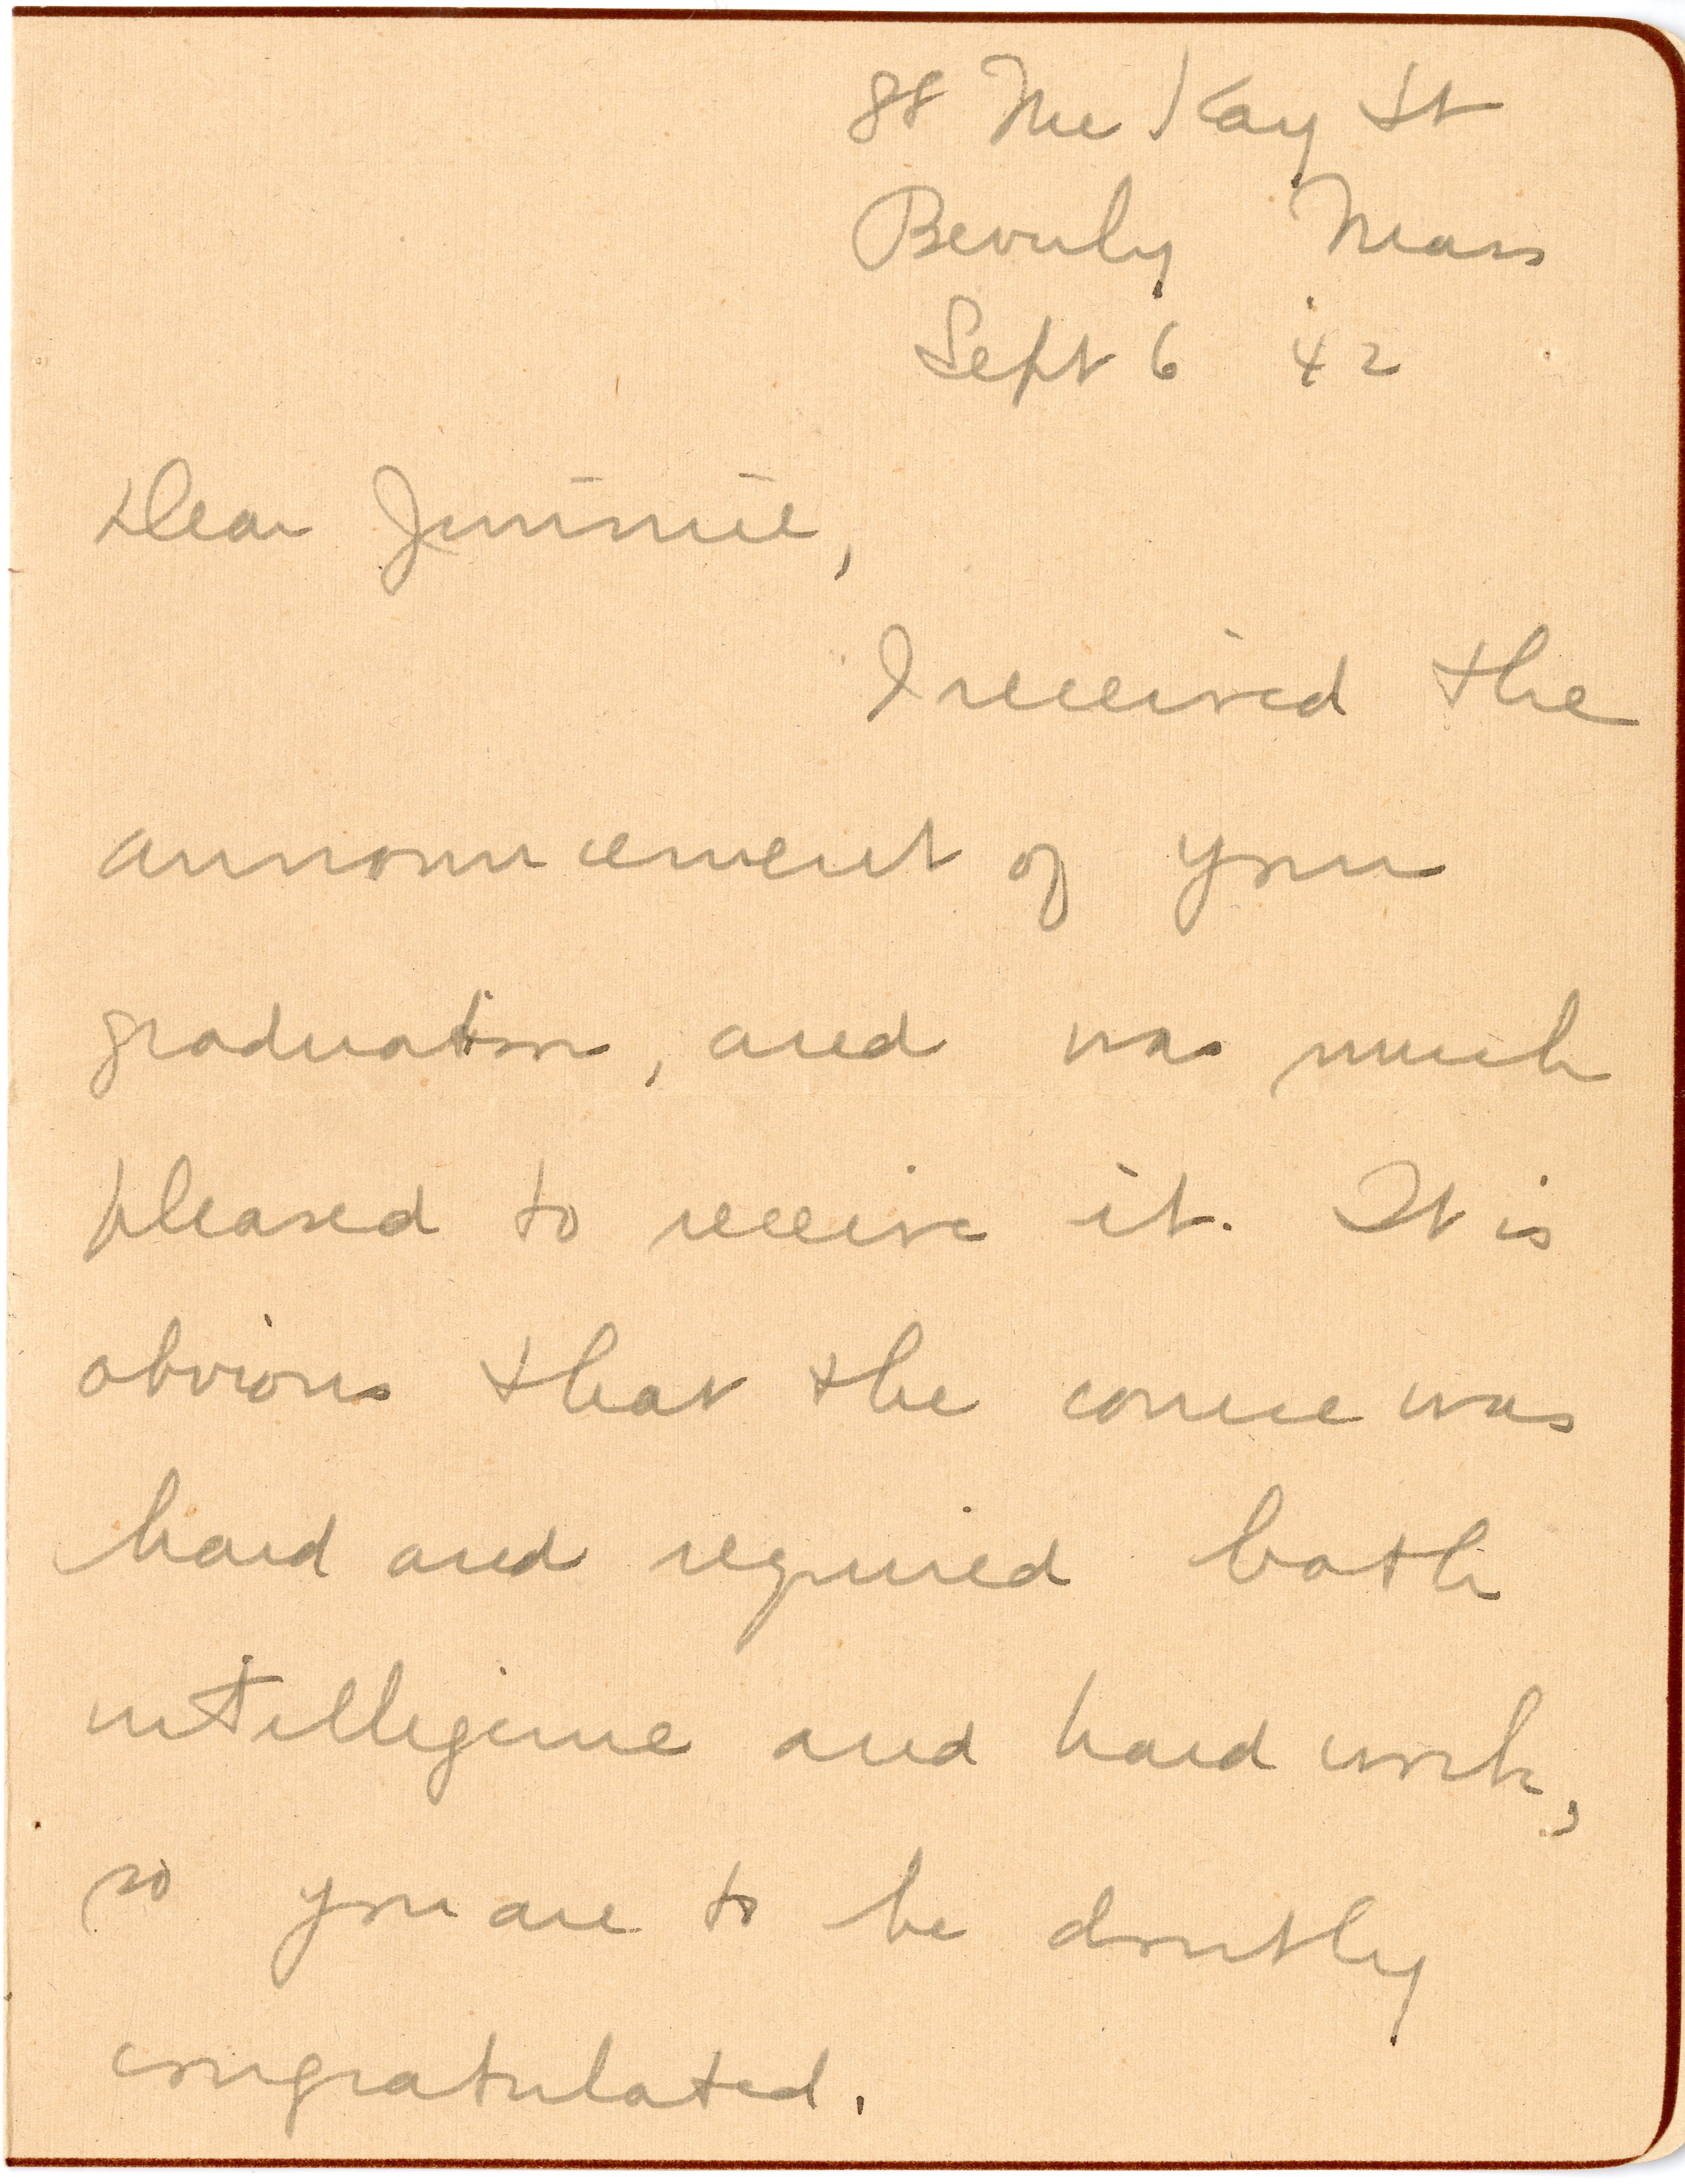 88 McKay St
Beverly Mass
Sept 6 '42
Dear Jimmie,
I received the
announcement of your
graduation, and was much
pleased to receive it. It is
obvious that the course was
hard and required both
intelligence and hard work,
so you are to be doubly
congratulated.